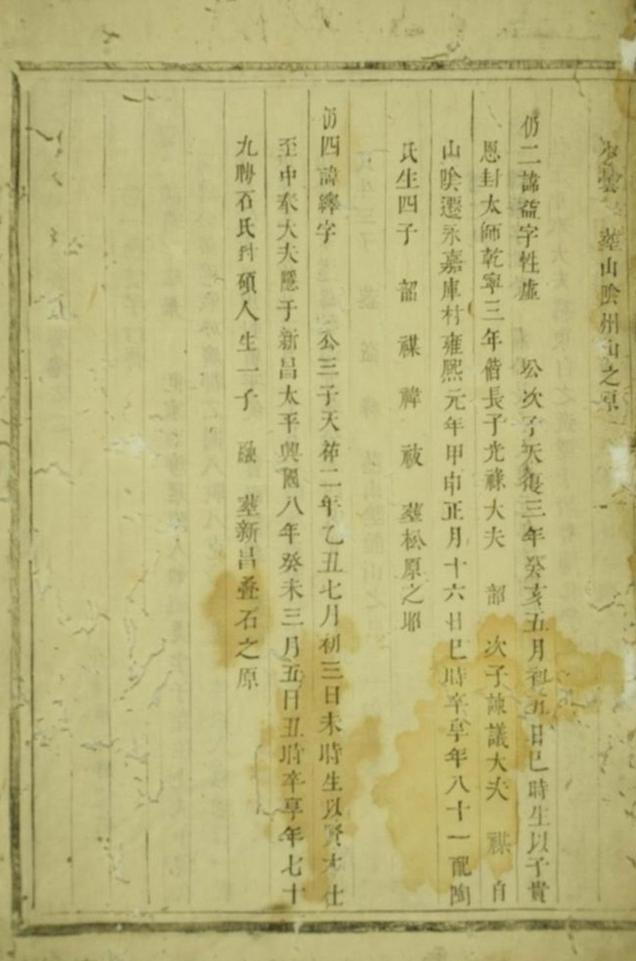 葬山陰州山之原
仍二諱益字性虛 公次子天復三年癸亥五月初五日巳時生以子貴
恩封太師乾寧三年偕長子光祿大夫 韶 次子諫議大夫 禖 自
山陰遷永嘉庫村雍熙元年甲申正月十六日巳時卒享年八十一配陶
氏生四子 韶 禖 禕 祓 葬松原之
仍四諱繹字 公三子天祐二年乙丑七月初三日未時生以賢才仕
至中奉大夫隱于新昌太平興國八年癸未三月五日丑時卒享年七十
九聘石氏封碩人生一子 融 葬新昌疊石之原